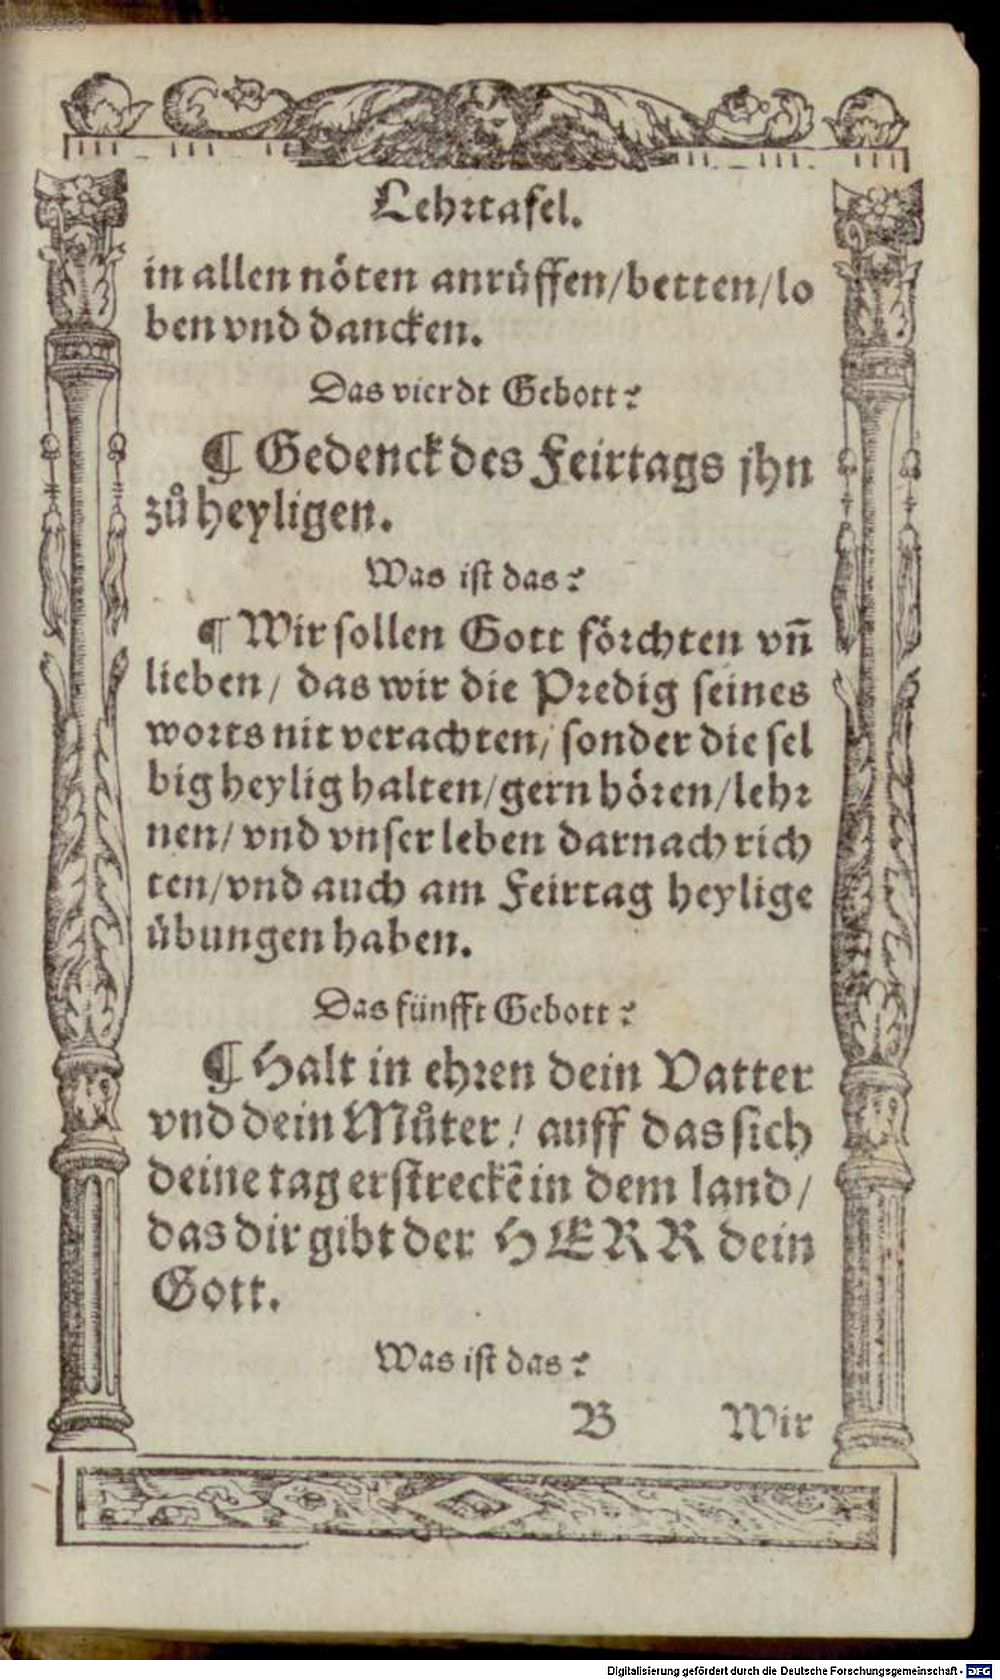 Lehrtafel.
in allen nöten anrüffen/betten/lo
ben vnd dancken.
Das vierdt Gebott?
¶ Gedenck des Feirtags jhn
zů heyligen.
Was ist das?
¶ Wir sollen Gott förchten vñ
lieben/ das wir die Predig seines
worts nit verachten/ sonder die sel
big heylig halten/gern hören/lehr
nen/ vnd vnser leben darnach rich
ten/vnd auch am Feirtag heylige
übungen haben.
Das fünfft Gebott?
¶ Halt in ehren dein Vatter
vnd dein Můter/ auff das sich
deine tag erstreckē in dem land/
das dir gibt der HERR dein
Gott.
Was ist das?
B Wir
Digitalisierung gefördert durch die Deutsche Forschungsgemeinschaft - DFG